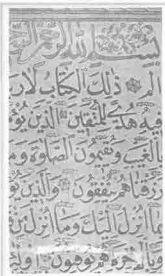 بسم الله الرحمن الر
الم ذلك الكتاب لا ر
فيه هدى للمتقين الذين يؤ
بالغيب ويقيمون الصلوة وم
رزقناهم ينفقون والذين يؤ
بما انزل اليك وما انزل من
وبالآخرة هم يوقنون اولئ